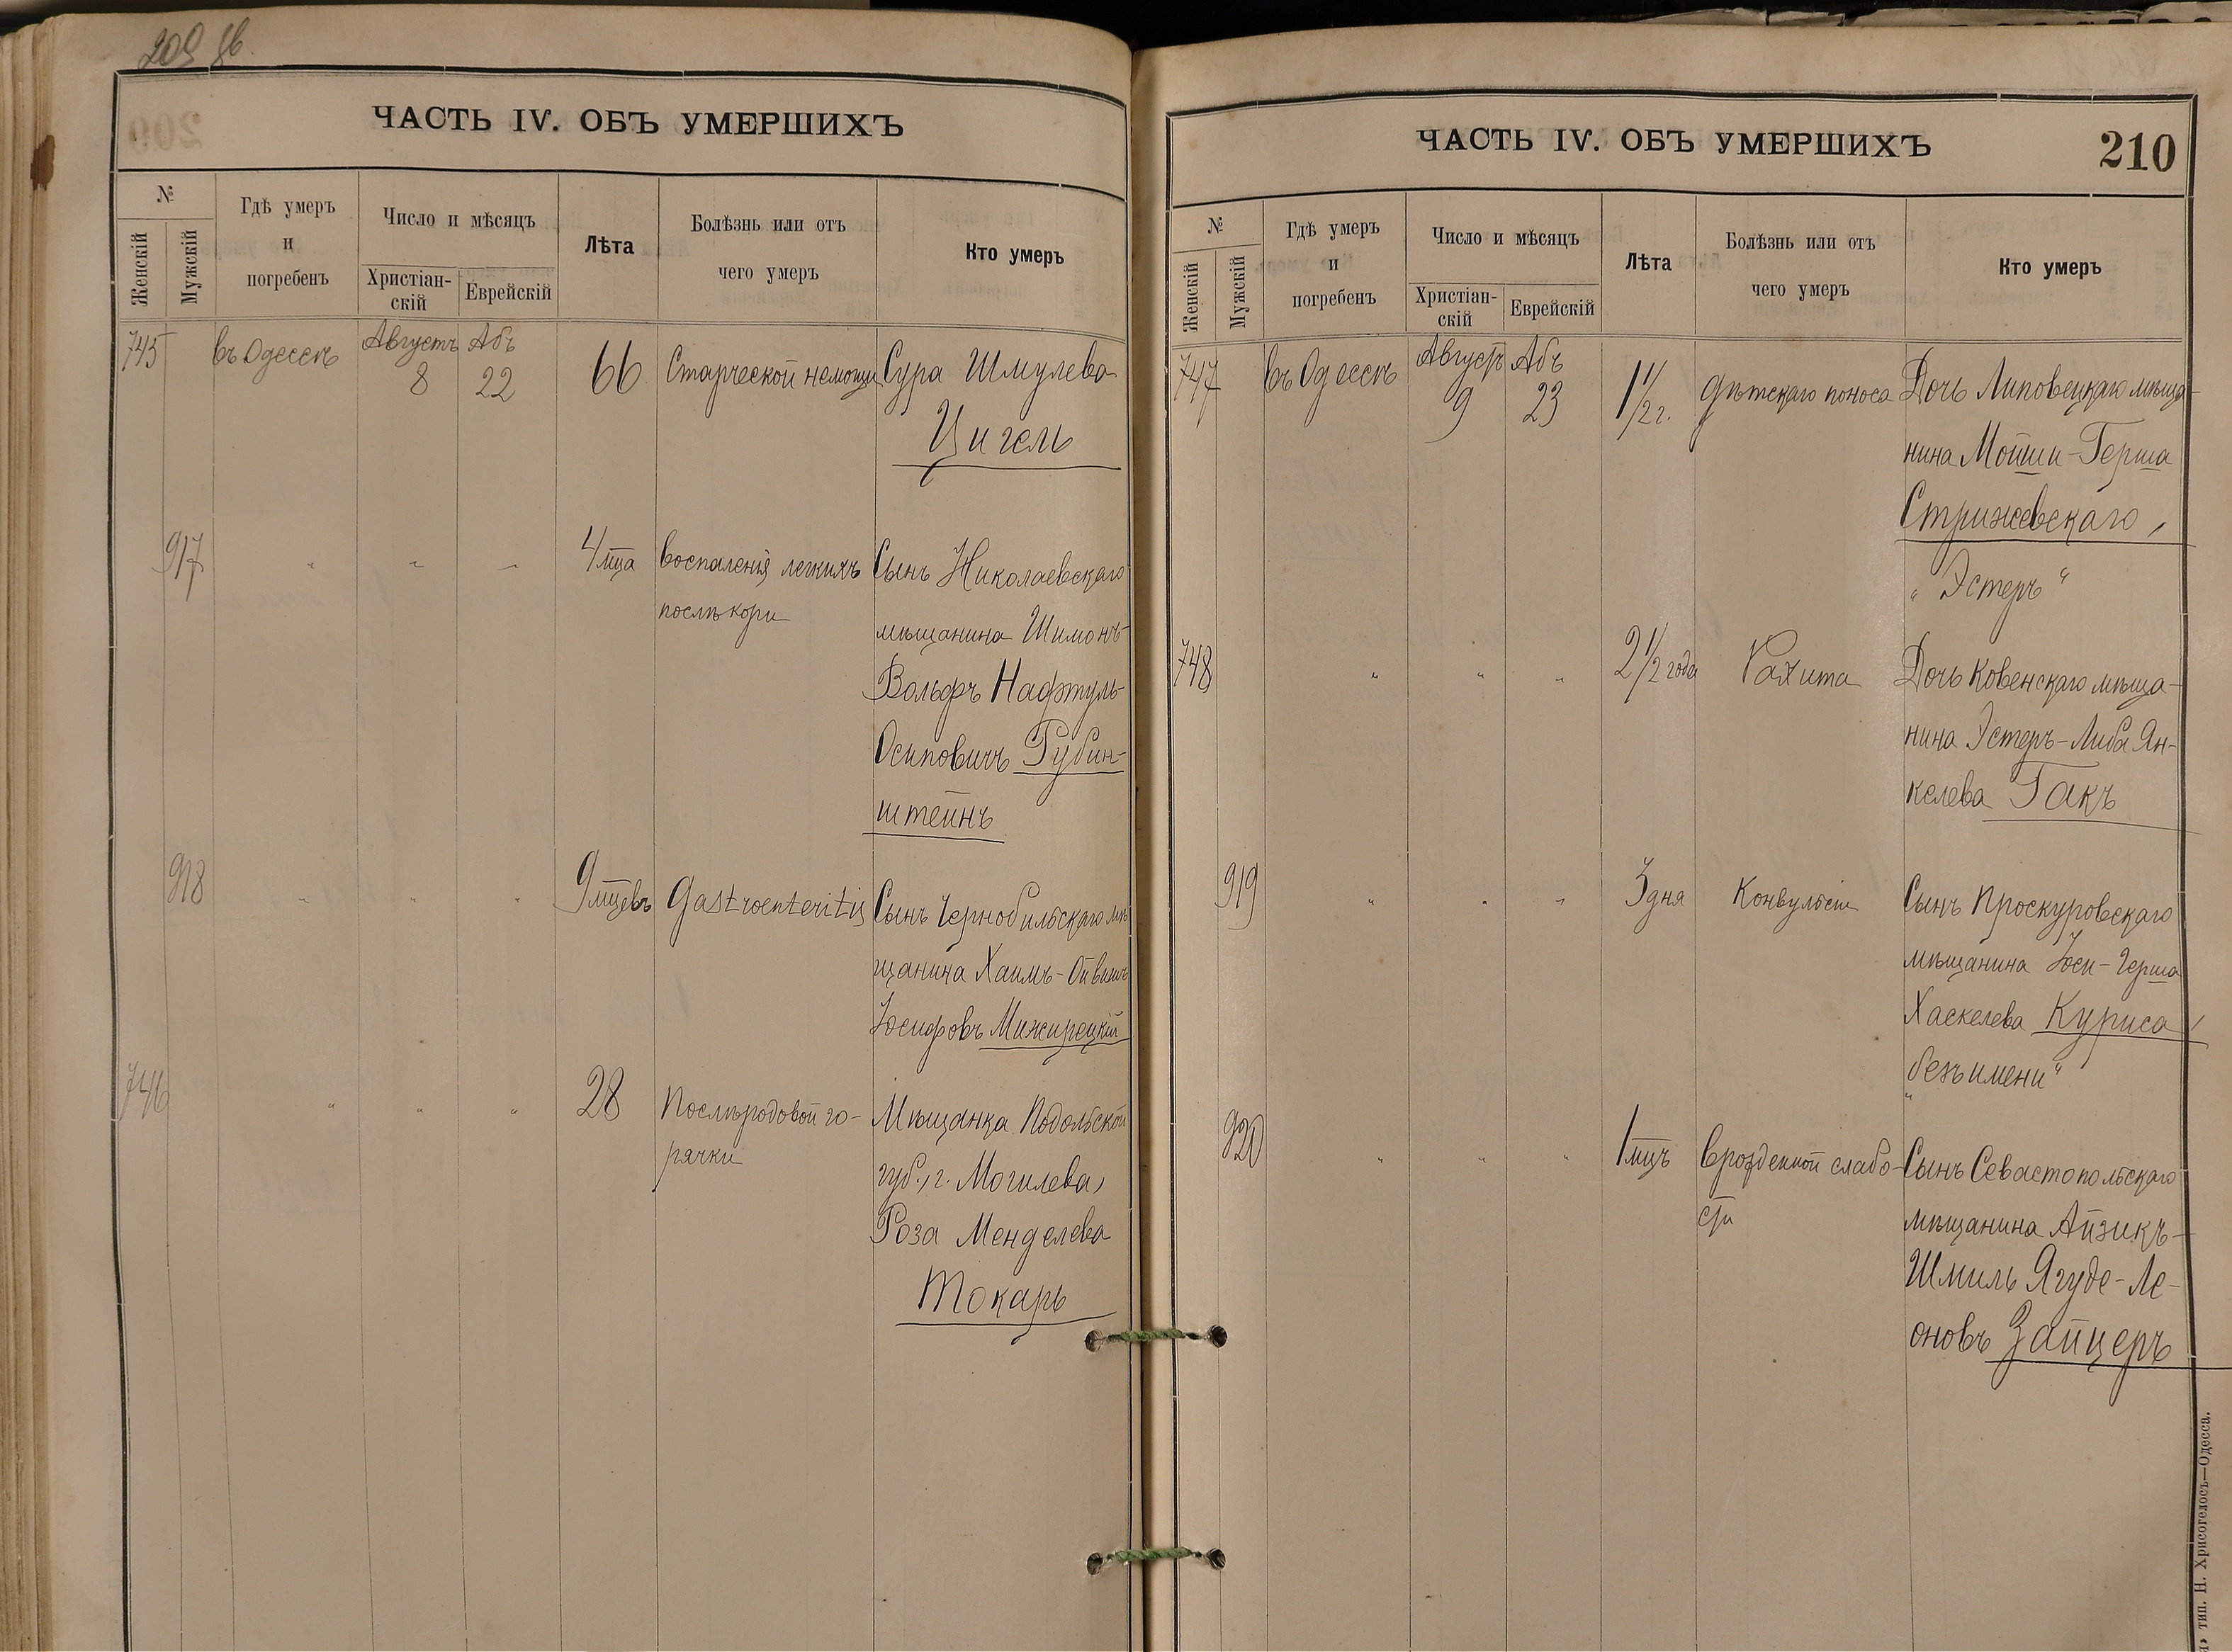 209 об.
ЧАСТЬ IV. ОБЪ УМЕРШИХЪ
№
Женскій
Мужскій
Гдѣ умеръ
и
погребенъ
Число и мѣсяцъ
Христіан-
скій
Еврейскій
Лѣта
Болѣзнь или отъ
чего умеръ
Кто умеръ
745 въ Одессѣ Августъ 8 Абъ 22 66 Старческой немощи Сура Шмулева
Цигель
917 " " " 4 м-ца воспаленія легкихъ Сынъ Николаевскаго
послѣ кори мѣщанина Шимонъ-
Вольфъ Нафтуль-
Осиповичъ Рубин-
штейнъ
918 " " " 9 м-цевъ Gastroenteritis Сынъ Чернобильскаго мѣ
щанина Хаимъ-Ойвишъ
Іосифовъ Межирецкій
746 " " " 28 Послѣродовой го- Мѣщанка Подольской
рячки губ., г. Могилева,
Роза Менделева
Токарь
ЧАСТЬ IV. ОБЪ УМЕРШИХЪ
210
№
Женскій
Мужскій
Гдѣ умеръ
и
погребенъ
Число и мѣсяцъ
Христіан-
скій
Еврейскій
Лѣта
Болѣзнь или отъ
чего умеръ
Кто умеръ
747 въ Одессѣ Августъ 9 Абъ 23 1 1/2 г. дѣтскаго поноса Дочь Липовецкаго мѣща-
нина Мойши-Герша
Стрижевскаго,
„Эстеръ“
748 " " " 2 1/2 года Рахита Дочь Ковенскаго мѣща-
нина Эстеръ-Либа Ян-
келева Гакъ
919 " " " 3 дня Конвульсіи Сынъ Проскуровскаго
мѣщанина Іоси-Герша
Хаскелева Куриса,
„безъ имени“
920 " " " 1 мцъ врожденной слабо- Сынъ Севастопольскаго
сти мѣщанина Айзикъ-
Шмиль Ягуде-Ле-
оновъ Зайцеръ
тип. Н. Хрисогелосъ—Одесса.